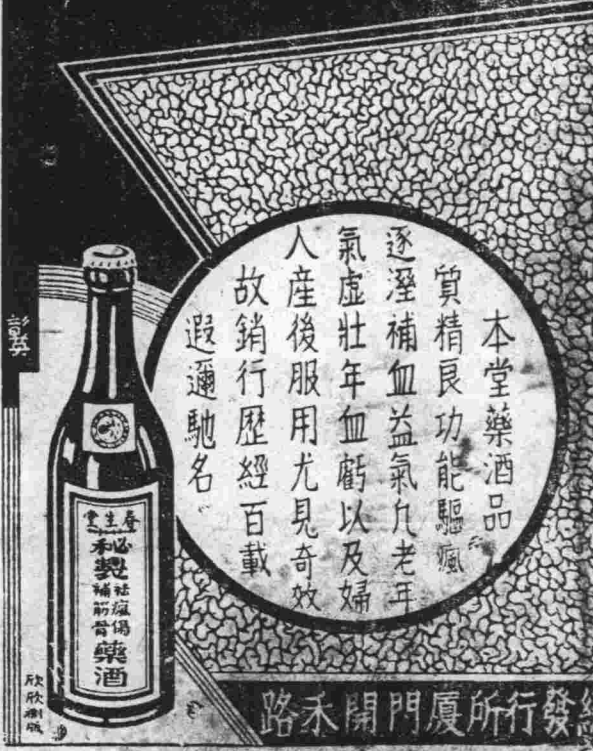 本堂藥酒品
質精良功能驅瘋
逐溼補血益氣凢老年
氣虛壯年血虧以及婦
人産後服用尤見奇效
故銷行歷經百載
遐邇馳名
春生堂
秘製
祛瘋傷
補筋骨
藥酒
發行所厦門開禾路